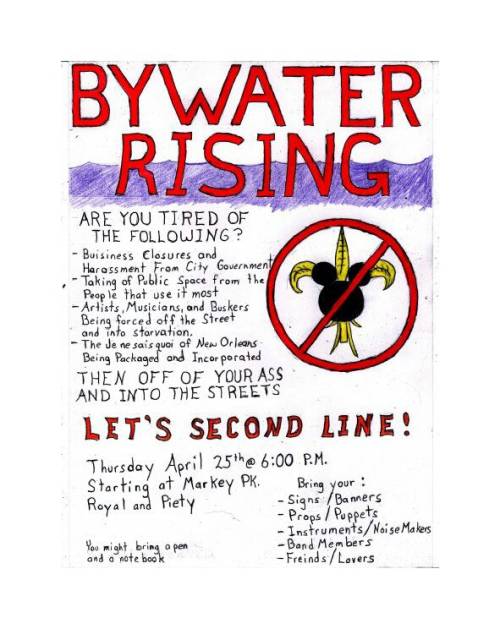 BYWATER
RISING
ARE YOU TIRED OF
THE FOLLOWING?
- Buisiness Closures and
Harassment From City Government
- Taking of Public Space from the
People that use it most
- Artists, Musicians, and Buskers
Being forced off the Street
and into starvation.
- The Je ne sais quoi of New Orleans
Being Packaged and Incorporated
THEN OFF OF YOUR ASS
AND INTO THE STREETS
LET'S SECOND LINE!
Thursday April 25th @ 6:00 P.M.
Starting at Markey PK.
Royal and Piety
You might bring a pen
and a notebook
Bring your:
- Signs / Banners
- Props / Puppets
- Instruments / Noise Makers
- Band Members
- Freinds / Lovers